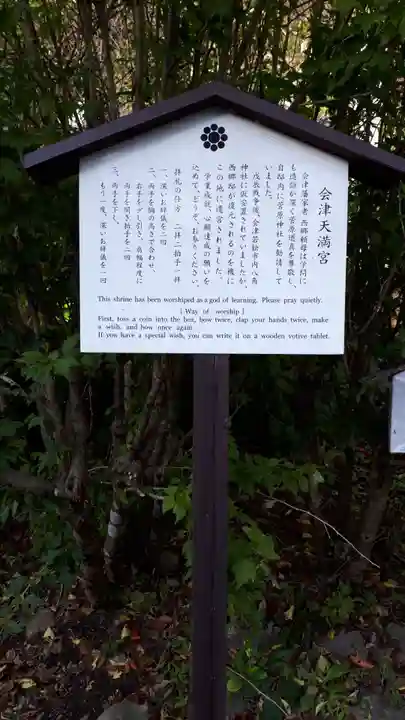 会津天満宮
会津藩家老 西郷頼母は学問に
も造詣が深く菅原道真を尊敬し、
自邸内に菅原神社を勧請して
いました。
戊辰戦争後、会津若松市内八角
神社に仮安置されていましたが、
西郷邸が復元されるのを機に
この地に遷宮されました。
学業成就、心願達成の願いを
込めて、どうぞ、お参りください。
拝礼の仕方 二拝二拍手一拝
一、深いお辞儀を二回
二、両手を胸の高さで合わせ、
右手を少し引き、肩幅程度に
両手を開き拍手を二回
三、両手を下し
もう一度、深いお辞儀を一回
This shrine has been worshiped as a god of learning. Please pray quietly.
[Way of worship]
First, toss a coin into the box, bow twice, clap your hands twice, make
a wish, and bow once again.
If you have a special wish, you can write it on a wooden votive tablet.